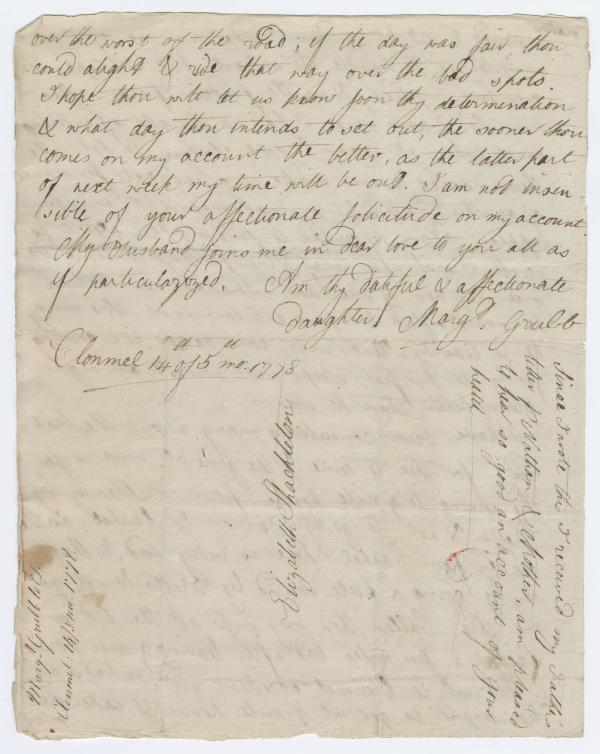 over the worst of the road; if the day was fair, thou
could alight & ride that way over the bad spots.
I hope thou wilt let us know soon thy determination
& what day thou intends to set out, the sooner thou
comes on my account the better, as the latter part
of next week my time will be out. I am not insen-
sible of your affectionate solicitude on my account.
My Husband joins me in dear love to you all as
if particularized. Am thy dutiful & affectionate
Daughter Margt. Grubb
Clonmel 14th of 5th mo. 1778
Since I wrote the I received my Father's
letter pr Nathan & Mother, am pleased
to hear so good an account of your
health
Elizabeth Shackleton
Margt. Grubb to
Clonmel 14/5 mo. 1778